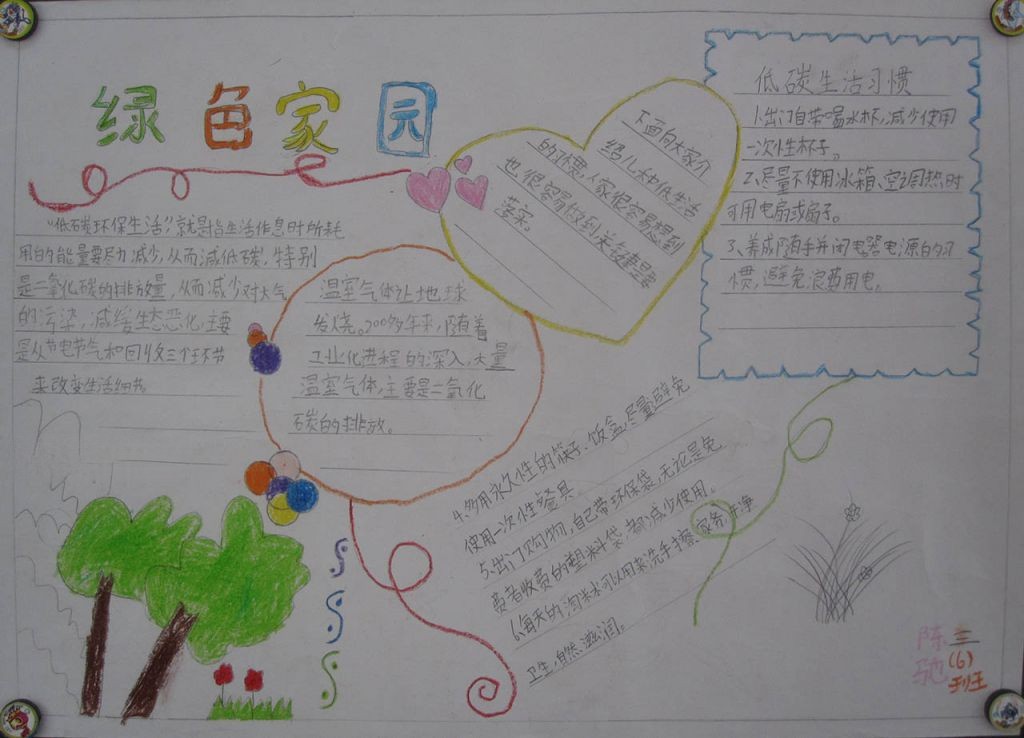 绿色家园
"低碳环保生活"就是指生活作息时所耗
用的能量要尽力减少,从而减低碳,特别
是二氧化碳的排放量,从而减少对大气
的污染,减缓生态恶化,主要
是从节电节气和回收三个环节
来改变生活细节。
温室气体让地球
发烧。200多年来,随着
工业化进程的深入,大量
温室气体,主要是二氧化
碳的排放。
下面向大家介
绍几种低生活
的习惯,人家很容易想到
也很容易做到关键是要
落实。
低碳生活习惯
1.出门自带喝水杯,减少使用
一次性杯子。
2.尽量不使用冰箱、空调,热时
可用电扇或扇子。
3.养成随手关闭电器电源的习
惯,避免浪费用电。
4.多用永久性的筷子、饭盒,尽量避免
使用一次性餐具。
5.出门购物,自己带环保袋,无论是免
费或者收费的塑料袋,都减少使用。
6.每天的淘米水可以用来洗手擦家务,干净
卫生,自然,滋润。
三
(6)
班
陈
驰